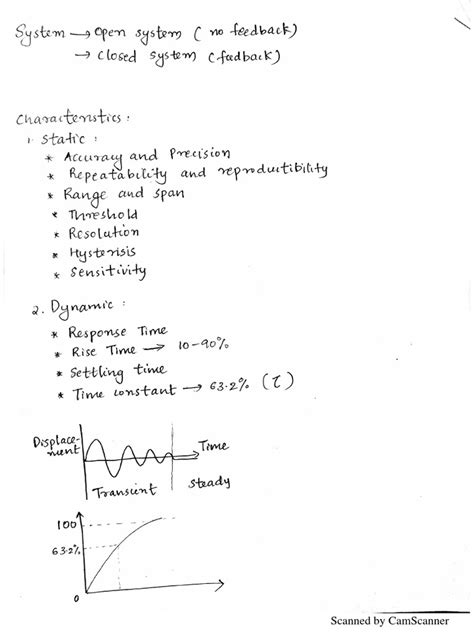 System → open system (no feedback)
→ closed system (feedback)
Characteristics:
1. Static:
* Accuracy and Precision
* Repeatability and reproductibility
* Range and span
* Threshold
* Resolution
* Hysterisis
* Sensitivity
2. Dynamic:
* Response Time
* Rise Time → 10-90%
* Settling time
* Time constant → 63.2% (τ)
Displace-
ment
Time
Transient
steady
100
63.2%
0
Scanned by CamScanner